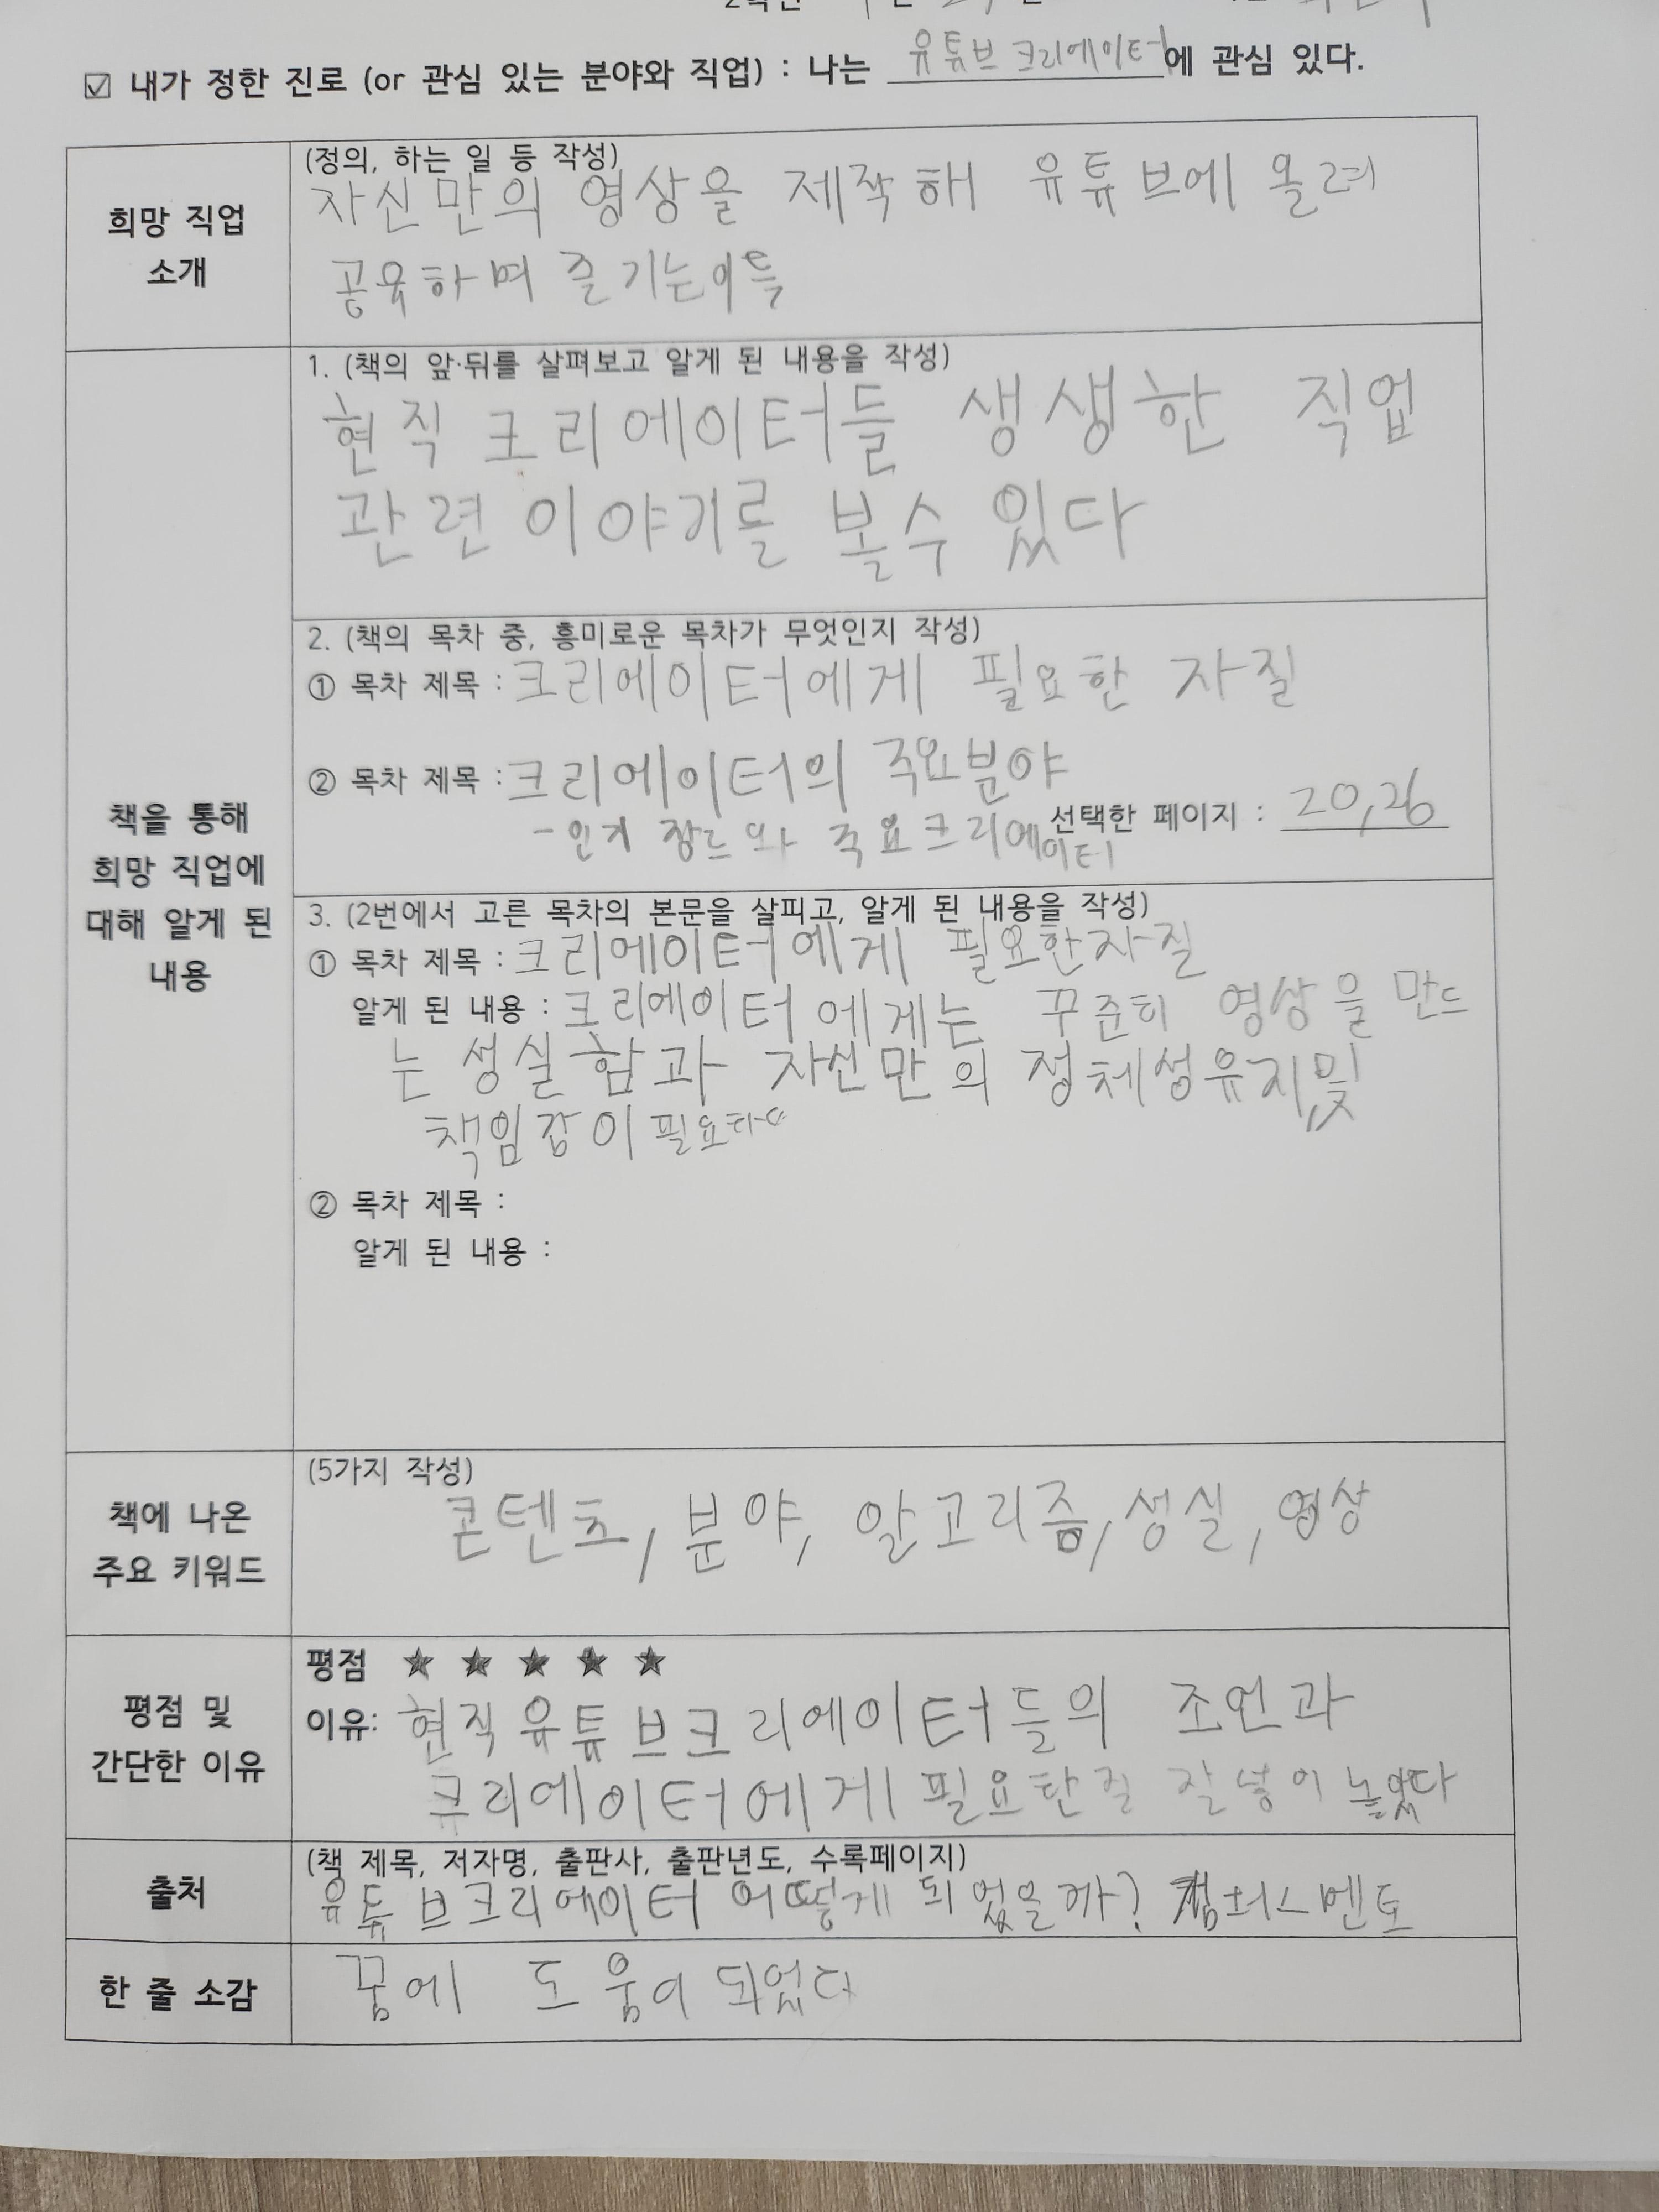 2학년
☑ 내가 정한 진로 (or 관심 있는 분야와 직업) : 나는 유튜브 크리에이터에 관심 있다.
희망 직업
소개
(정의, 하는 일 등 작성)
자신만의 영상을 제작해 유튜브에 올려
공유하며 즐기는
책을 통해
희망 직업에
대해 알게 된
내용
1. (책의 앞·뒤를 살펴보고 알게 된 내용을 작성)
현직 크리에이터들 생생한 직업
관련 이야기를 볼수 있다
2. (책의 목차 중, 흥미로운 목차가 무엇인지 작성)
① 목차 제목 : 크리에이터에게 필요한 자질
② 목차 제목 : 크리에이터의 주요분야
- 인기 장르와 주요크리에이터
선택한 페이지 : 20,26
3. (2번에서 고른 목차의 본문을 살피고, 알게 된 내용을 작성)
① 목차 제목 : 크리에이터에게 필요한자질
알게 된 내용 : 크리에이터에게는 꾸준히 영상을 만드
는 성실함과 자신만의 정체성유지및
책임감이 필요하다
② 목차 제목 :
알게 된 내용 :
책에 나온
주요 키워드
(5가지 작성)
콘텐츠, 분야, 알고리즘, 성실, 영상
평점 및
간단한 이유
평점 ★ ★ ★ ★ ★
이유: 현직유튜브크리에이터들의 조언과
크리에이터에게 필요한 잘
출처
(책 제목, 저자명, 출판사, 출판년도, 수록페이지)
유튜브크리에이터 어떻게 되었을까? 캠퍼스멘토
한 줄 소감
꿈에 도움이 되었다